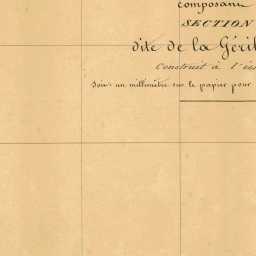 composant
SECTION
dite de la Géril
Construit à l'é
Soit un millimètre sur le papier pour